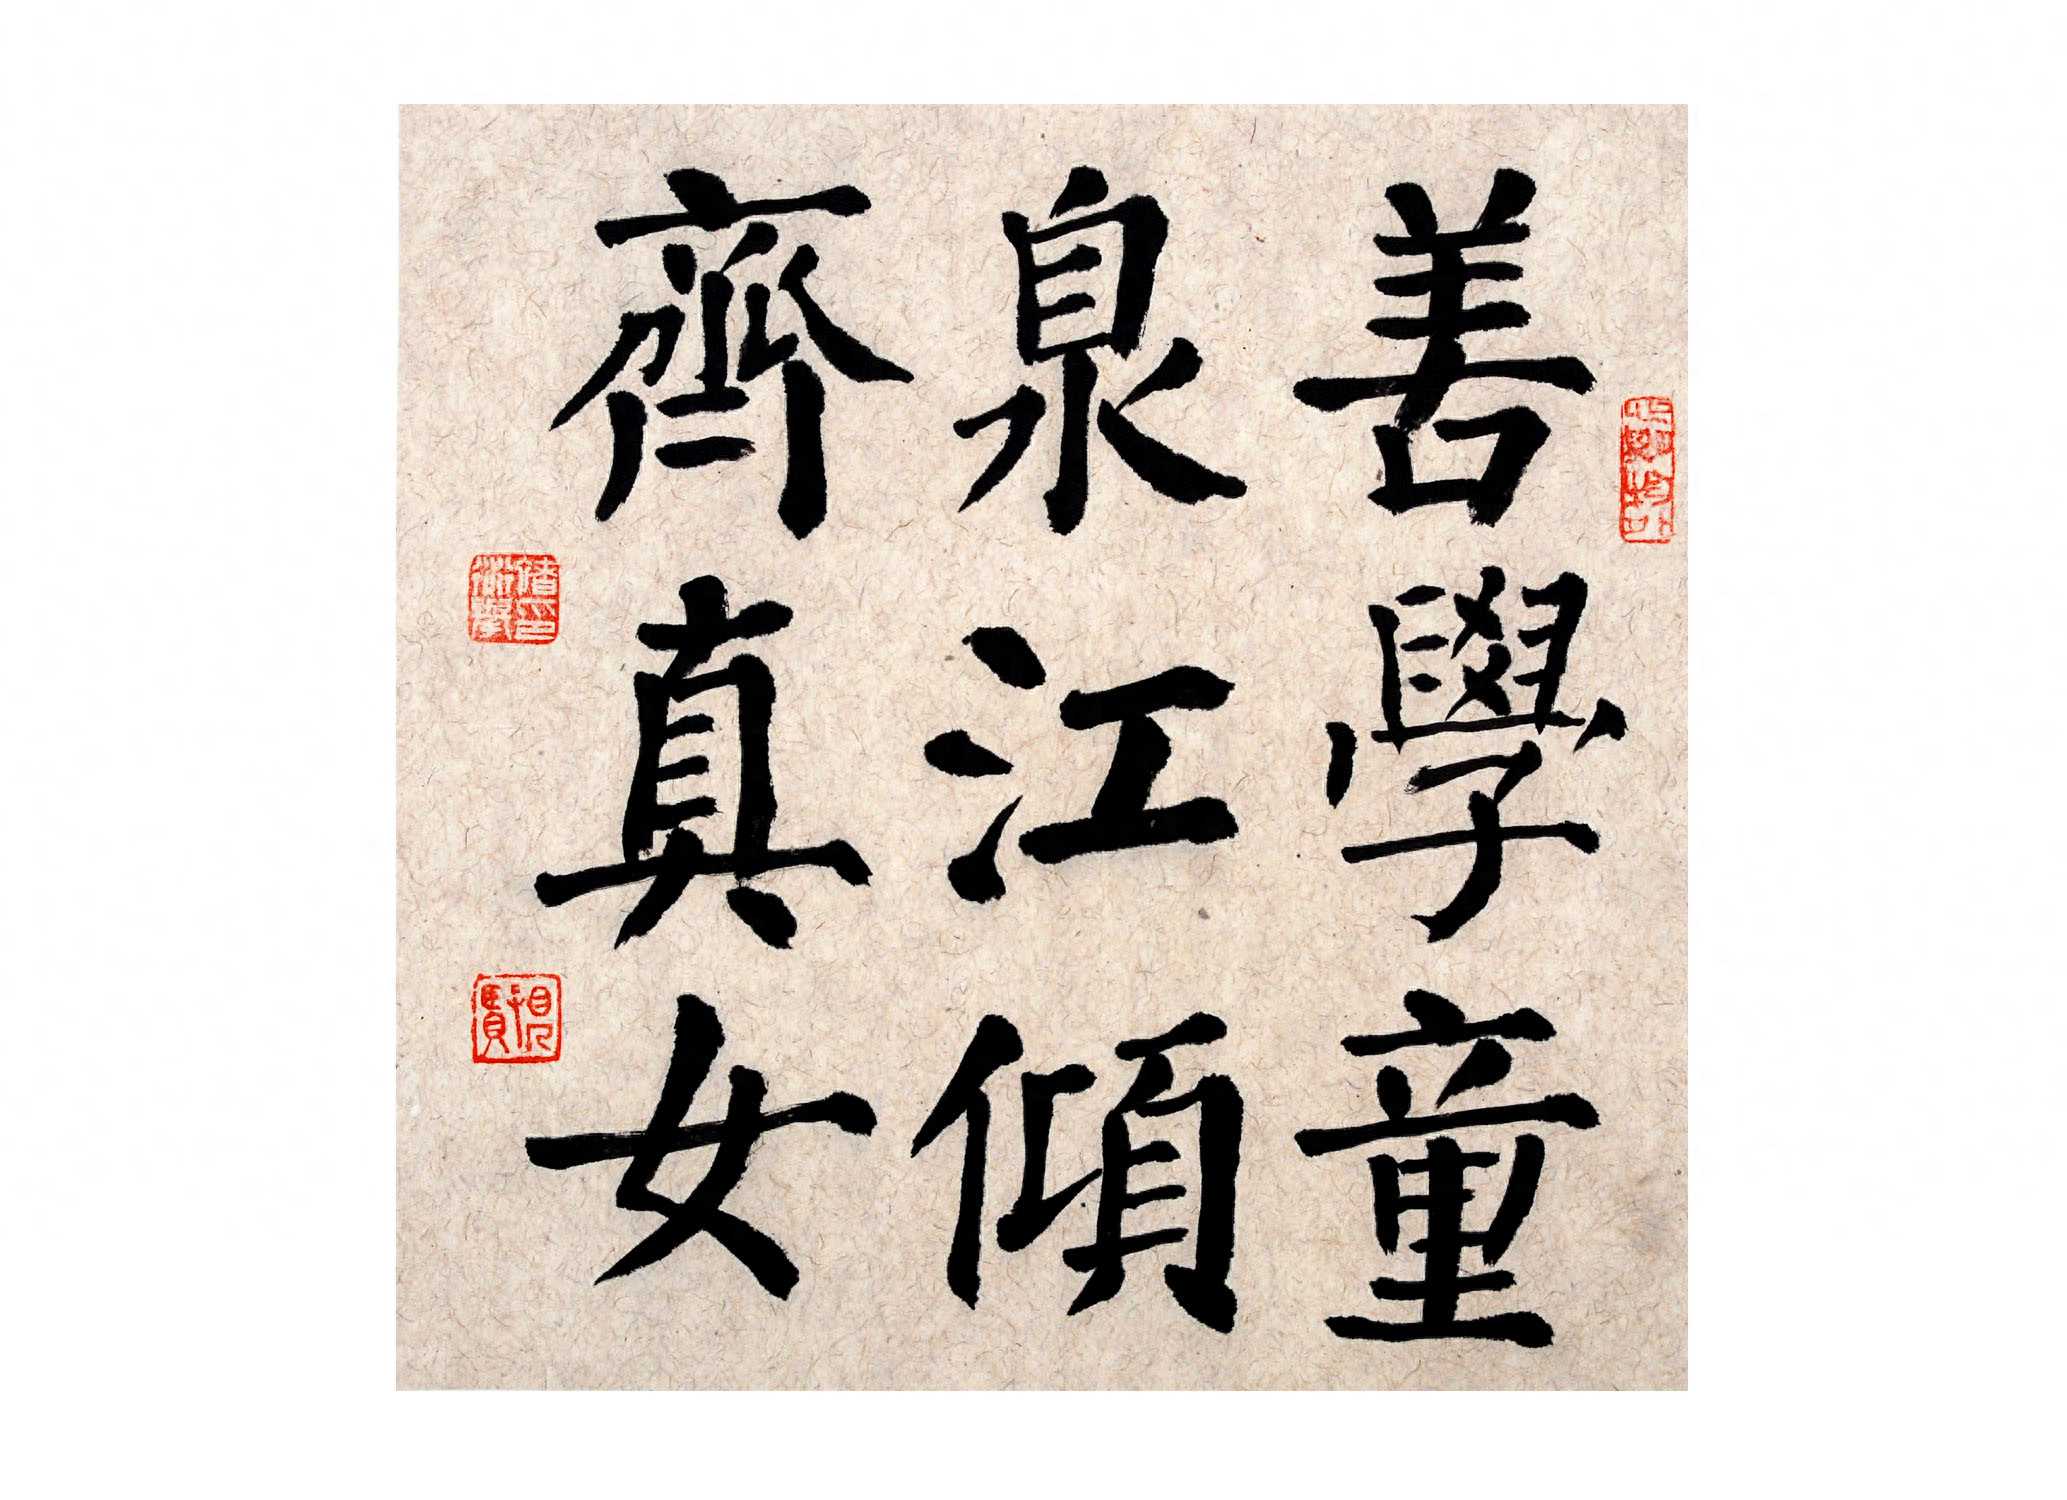 善學童
泉江傾
齊真女